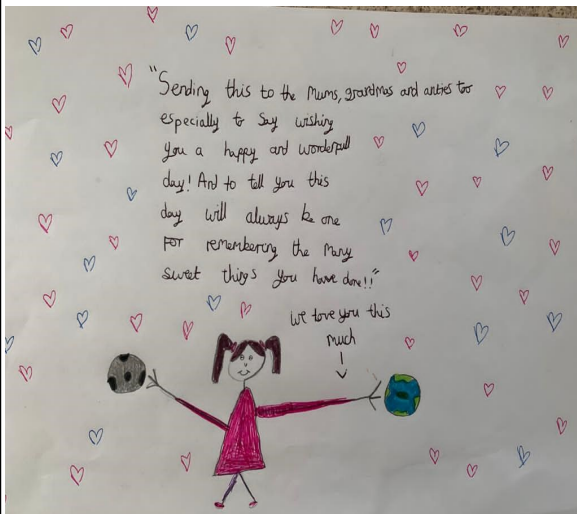 "Sending this to the Mums, grandmas and anties too
especially to say wishing
you a happy and wonderfull
day! And to tell you this
day will always be one
For remembering the many
sweet things you have done!!"
we love you this
much